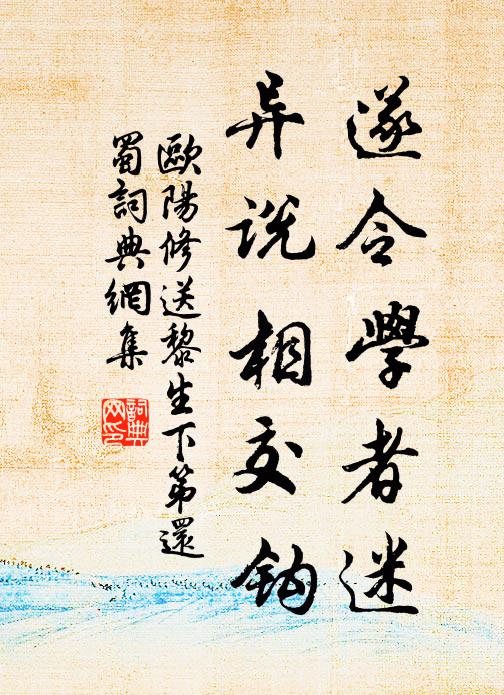 遂令學者迷
异说相交钩
歐陽修送黎生下第還
蜀詞典網集
詞典
网印